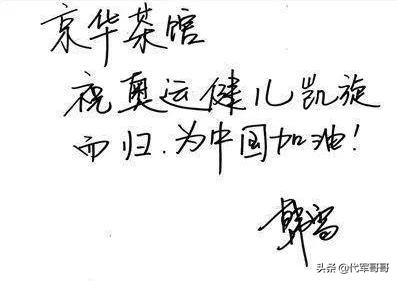 京华茶馆
祝奥运健儿凯旋
而归.为中国加油!
韩雪
头条 @代军哥哥